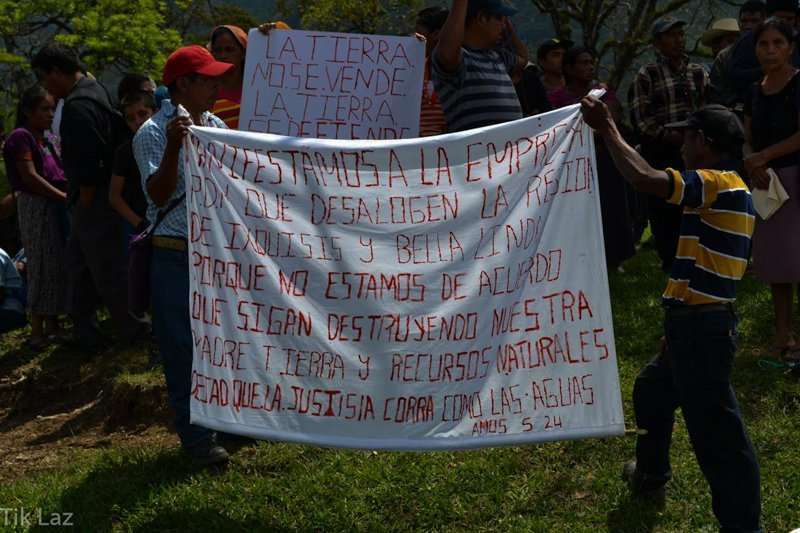 LA TIERRA
NO.SE.VENDE.
LA TIERRA
SE DEFIENDE
MANIFESTAMOS A LA EMPRESA
PDH QUE DESALOGEN LA REGION
DE IXQUISIS Y BELLA LINDA
PORQUE NO ESTAMOS DE ACUERDO
QUE SIGAN DESTRUYENDO NUESTRA
MADRE TIERRA Y RECURSOS NATURALES
DEJAD QUE.LA.JUSTISIA CORRA COMO LAS AGUAS
AMOS 5 24
Tik Laz